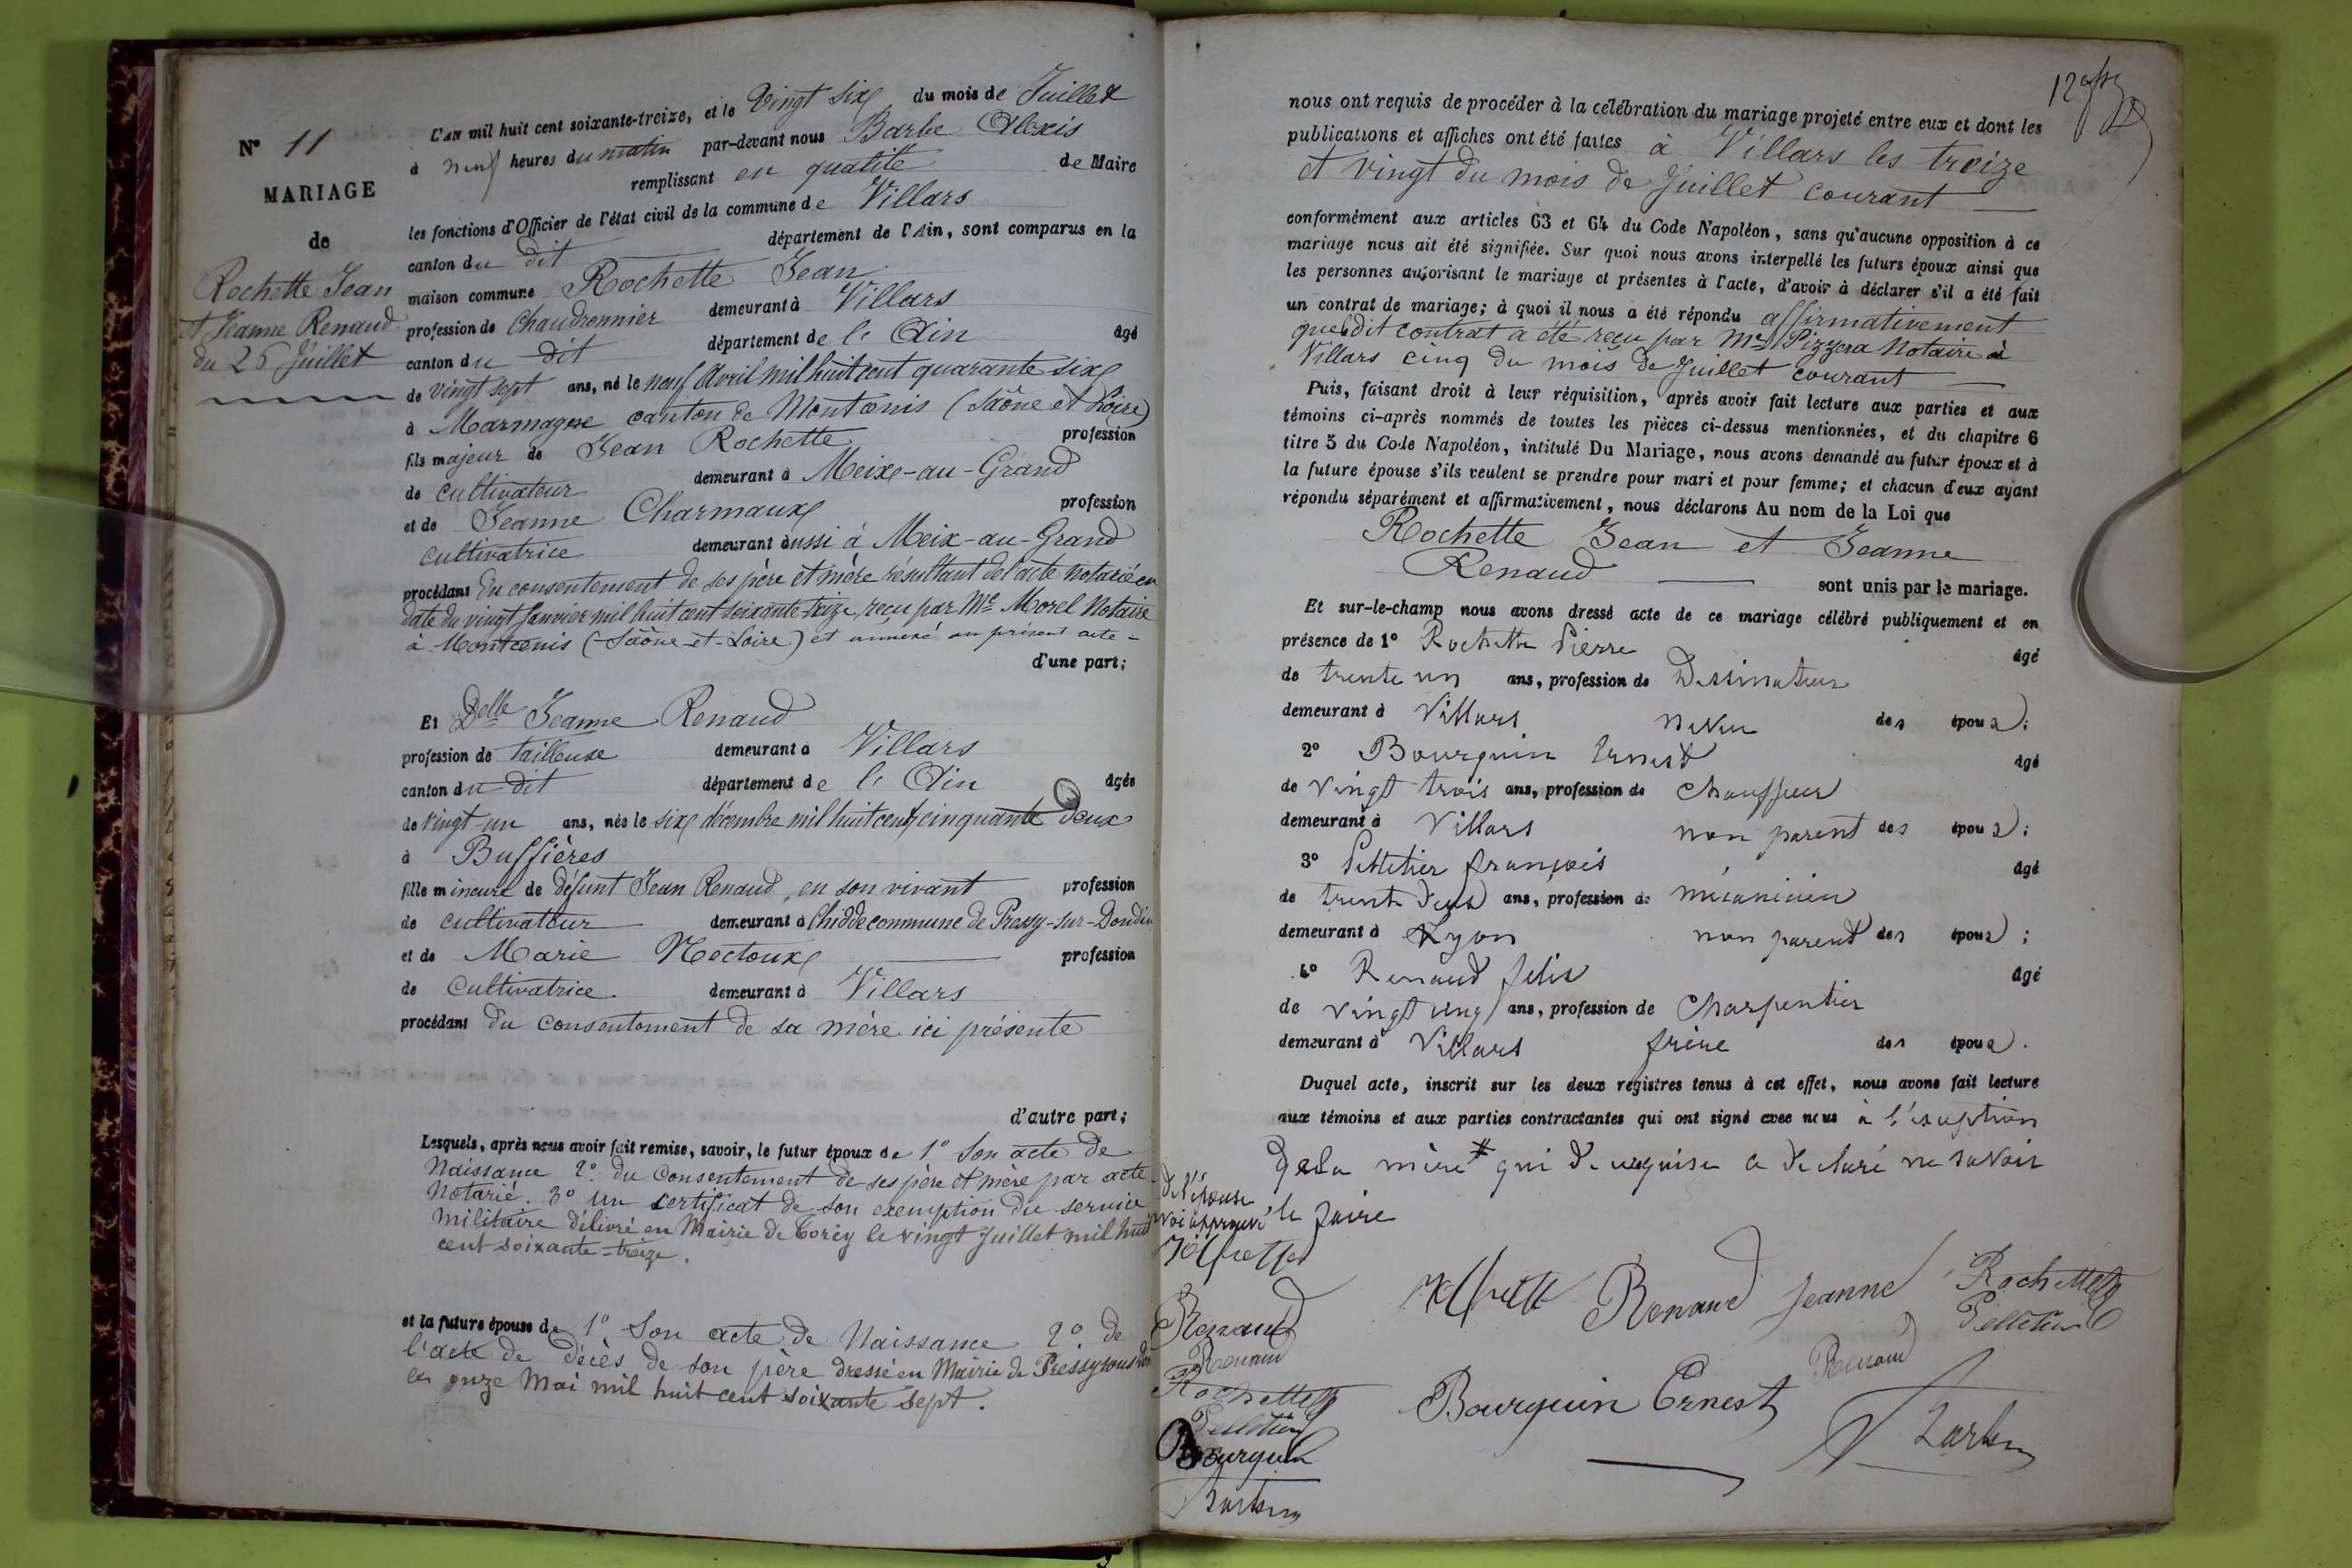 N° 11
MARIAGE
de
Rochette Jean
et Jeanne Renaud
du 26 Juillet
L'AN mil huit cent soixante-treize, et le vingt six du mois de Juillet
à neuf heures du matin par-devant nous Barbe Alexis
remplissant en qualité de Maire
les fonctions d'Officier de l'état civil de la commune de Villars
canton du dit département de l'Ain, sont comparus en la
maison commune Rochette Jean
profession de Chaudronnier demeurant à Villars
canton du dit département de l'Ain âgé
de vingt sept ans, né le neuf Avril mil huit cent quarante six
à Marmagne canton de Montcenis (Saône et Loire)
fils majeur de Jean Rochette profession
de cultivateur demeurant à Meix-au-Grand
et de Jeanne Charmaux profession
cultivatrice demeurant aussi à Meix-au-Grand
procédant du consentement de ses père et mère résultant del acte notarié en
date du vingt Janvier mil huit cent soixante-treize, reçu par Me Morel Notaire
à Montcenis (Saône-et-Loire) et annexé au présent acte -
d'une part;
Et Delle Jeanne Renaud
profession de tailleuse demeurant à Villars
canton du dit département de l'Ain âgée
de vingt-un ans, née le six décembre mil huit cent cinquante deux
à Buffières
fille mineure de défunt Jean Renaud, en son vivant profession
de cultivateur demeurant à Chidde commune de Pressy-sur-Dondin
et de Marie Nectoux profession
de Cultivatrice demeurant à Villars
procédant du consentement de sa mère ici présente
d'autre part;
Lesquels, après nous avoir fait remise, savoir, le futur époux de 1° Son acte de
Naissance 2° du consentement de ses père et mère par acte
Notarié. 3° un certificat de son exemption du service
militaire délivré en Mairie de Torcy le vingt Juillet mil huit
cent soixante-treize.
et la future épouse de 1° Son acte de Naissance 2° de
l'acte de décès de son père dressé en Mairie de Pressy sous Don
le onze Mai mil huit cent soixante sept.
nous ont requis de procéder à la célébration du mariage projeté entre eux et dont les
publications et affiches ont été faites à Villars les treize
et vingt du mois de Juillet courant
conformément aux articles 63 et 64 du Code Napoléon, sans qu'aucune opposition à ce
mariage nous ait été signifiée. Sur quoi nous avons interpellé les futurs époux ainsi que
les personnes autorisant le mariage et présentes à l'acte, d'avoir à déclarer s'il a été fait
un contrat de mariage; à quoi il nous a été répondu affirmativement
que ledit contrat a été reçu par Me Pizzera Notaire à
Villars cinq du mois de Juillet courant
Puis, faisant droit à leur réquisition, après avoir fait lecture aux parties et aux
témoins ci-après nommés de toutes les pièces ci-dessus mentionnées, et du chapitre 6
titre 5 du Code Napoléon, intitulé Du Mariage, nous avons demandé au futur époux et à
la future épouse s'ils veulent se prendre pour mari et pour femme; et chacun d'eux ayant
répondu séparément et affirmativement, nous déclarons Au nom de la Loi que
Rochette Jean et Jeanne
Renaud sont unis par le mariage.
Et sur-le-champ nous avons dressé acte de ce mariage célébré publiquement et en
présence de 1° Rochette Pierre âgé
de trente un ans, profession de Dessinateur
demeurant à Villars neveu des époux;
2° Bourquin Ernest âgé
de vingt trois ans, profession de Chauffeur
demeurant à Villars non parent des époux;
3° Pelletier françois âgé
de trente deux ans, profession de mécanicien
demeurant à Lyon non parent des époux;
4° Renaud felix âgé
de vingt cinq ans, profession de Charpentier
demeurant à Villars frère des époux.
Duquel acte, inscrit sur les deux registres tenus à cet effet, nous avons fait lecture
aux témoins et aux parties contractantes qui ont signé avec nous à l'exception
de la mère # qui de ce requise a declaré ne savoir
le faire
de l'épouse
Renaud
Renaud
Rochette
Pelletier
Bourquin
Barbe
Renaud Jeanne
Rochette
Pelletier
Renaud
Bourquin Ernest
Barbe